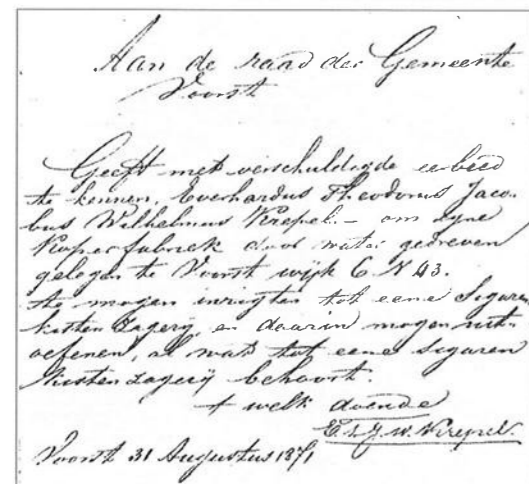 Aan de raad der Gemeente
Voorst
Geeft met verschuldigde eerbied
te kennen, Everhardus Theodorus Jaco-
bus Wilhelmus Krepel. – om zyne
Koperfabriek door water gedreven
gelegen te Voorst wijk C N 43.
te mogen inrigten tot eene Segaren
kisten zagerij, en daarin mogen uit-
oefenen, al wat tot eene segaren
kisten zagerij behoort.
't welk doende
E.T.J.W. Krepel.
Voorst 31 Augustus 1871